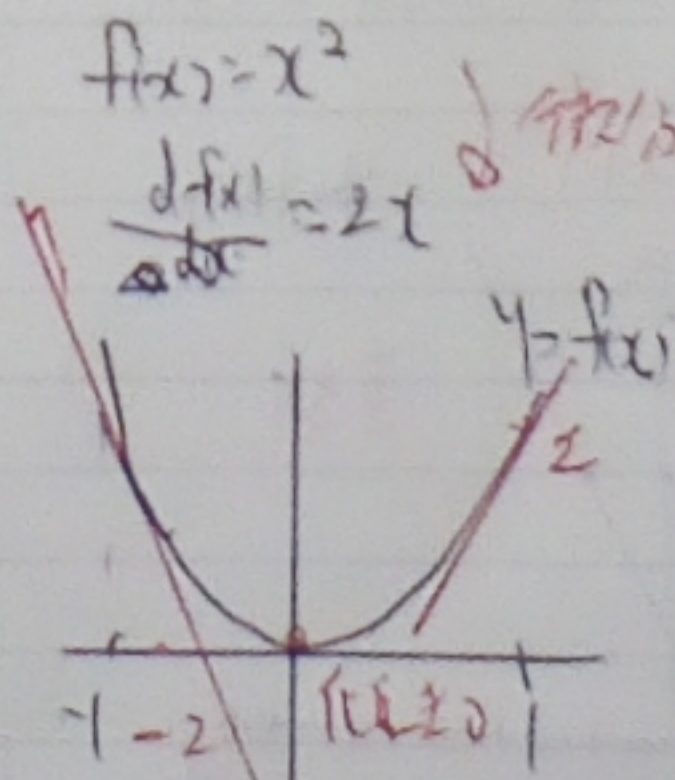 f(x) = x²
d f(x) / dx = 2x
y = f(x)
2
-1
-2
0
1